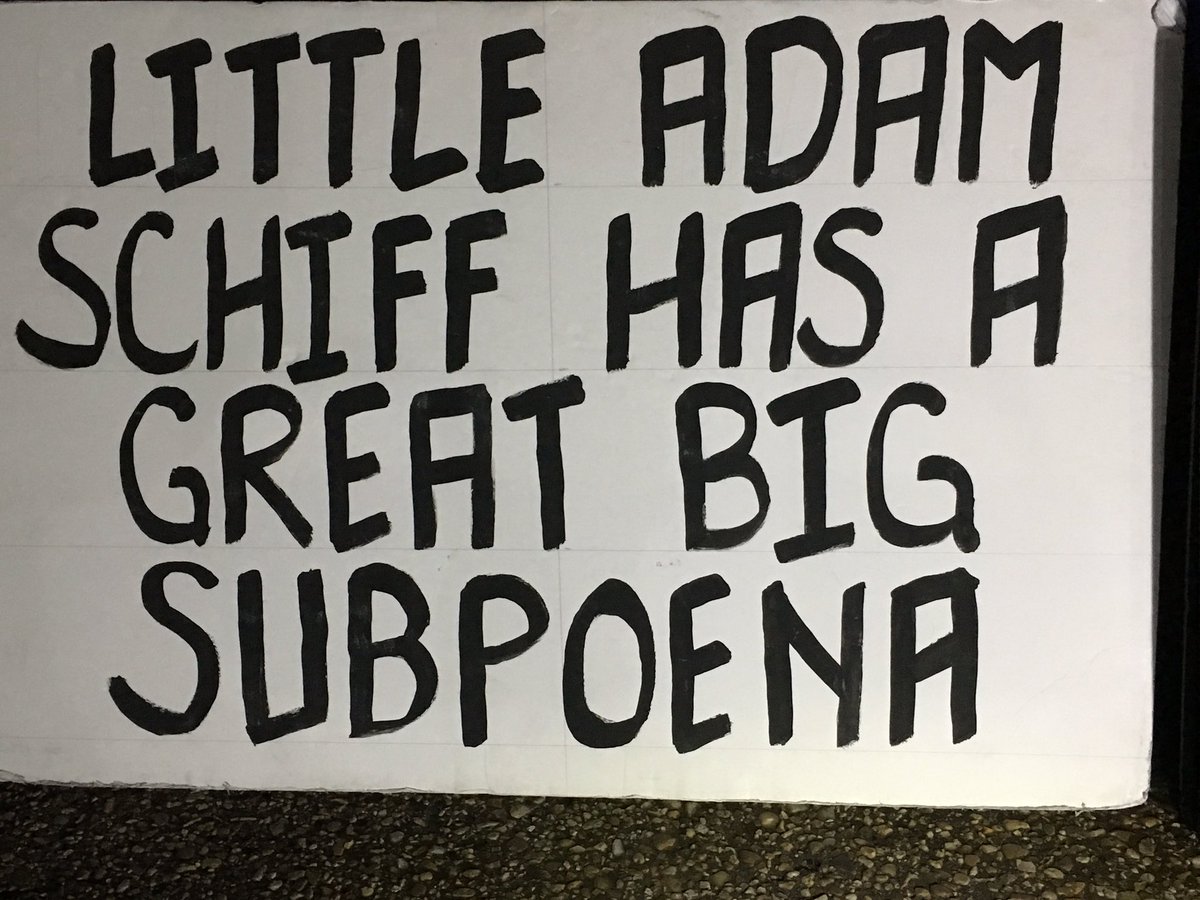 LITTLE ADAM
SCHIFF HAS A
GREAT BIG
SUBPOENA